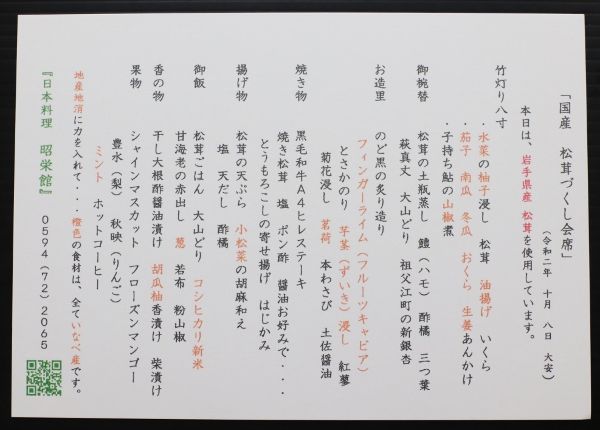 「国産　松茸づくし会席」
（令和二年　十月　八日　大安）
本日は、岩手県産　松茸を使用しています。
竹灯り八寸
・水菜の柚子浸し　松茸　油揚げ　いくら
・茄子　南瓜　冬瓜　おくら　生姜あんかけ
・子持ち鮎の山椒煮
御椀替　松茸の土瓶蒸し　鱧（ハモ）　酢橘　三つ葉
萩真丈　大山どり　祖父江町の新銀杏
お造里　のど黒の炙り造り
フィンガーライム（フルーツキャビア）
とさかのり　芋茎（ずいき）浸し　紅蓼
菊花浸し　茗荷　本わさび　土佐醤油
焼き物　黒毛和牛A４ヒレステーキ
焼き松茸　塩　ポン酢　醤油お好みで・・・
とうもろこしの寄せ揚げ　はじかみ
揚げ物　松茸の天ぷら　小松菜の胡麻和え
塩　天だし　酢橘
御飯　松茸ごはん　大山どり　コシヒカリ新米
甘海老の赤出し　葱　若布　粉山椒
香の物　干し大根酢醤油漬け　胡瓜柚香漬け　柴漬け
果物　シャインマスカット　フローズンマンゴー
豊水（梨）　秋映（りんご）
ミント　ホットコーヒー
地産地消に力を入れて・・・橙色の食材は、全ていなべ産です。
『日本料理　昭栄館』　0594（72）2065